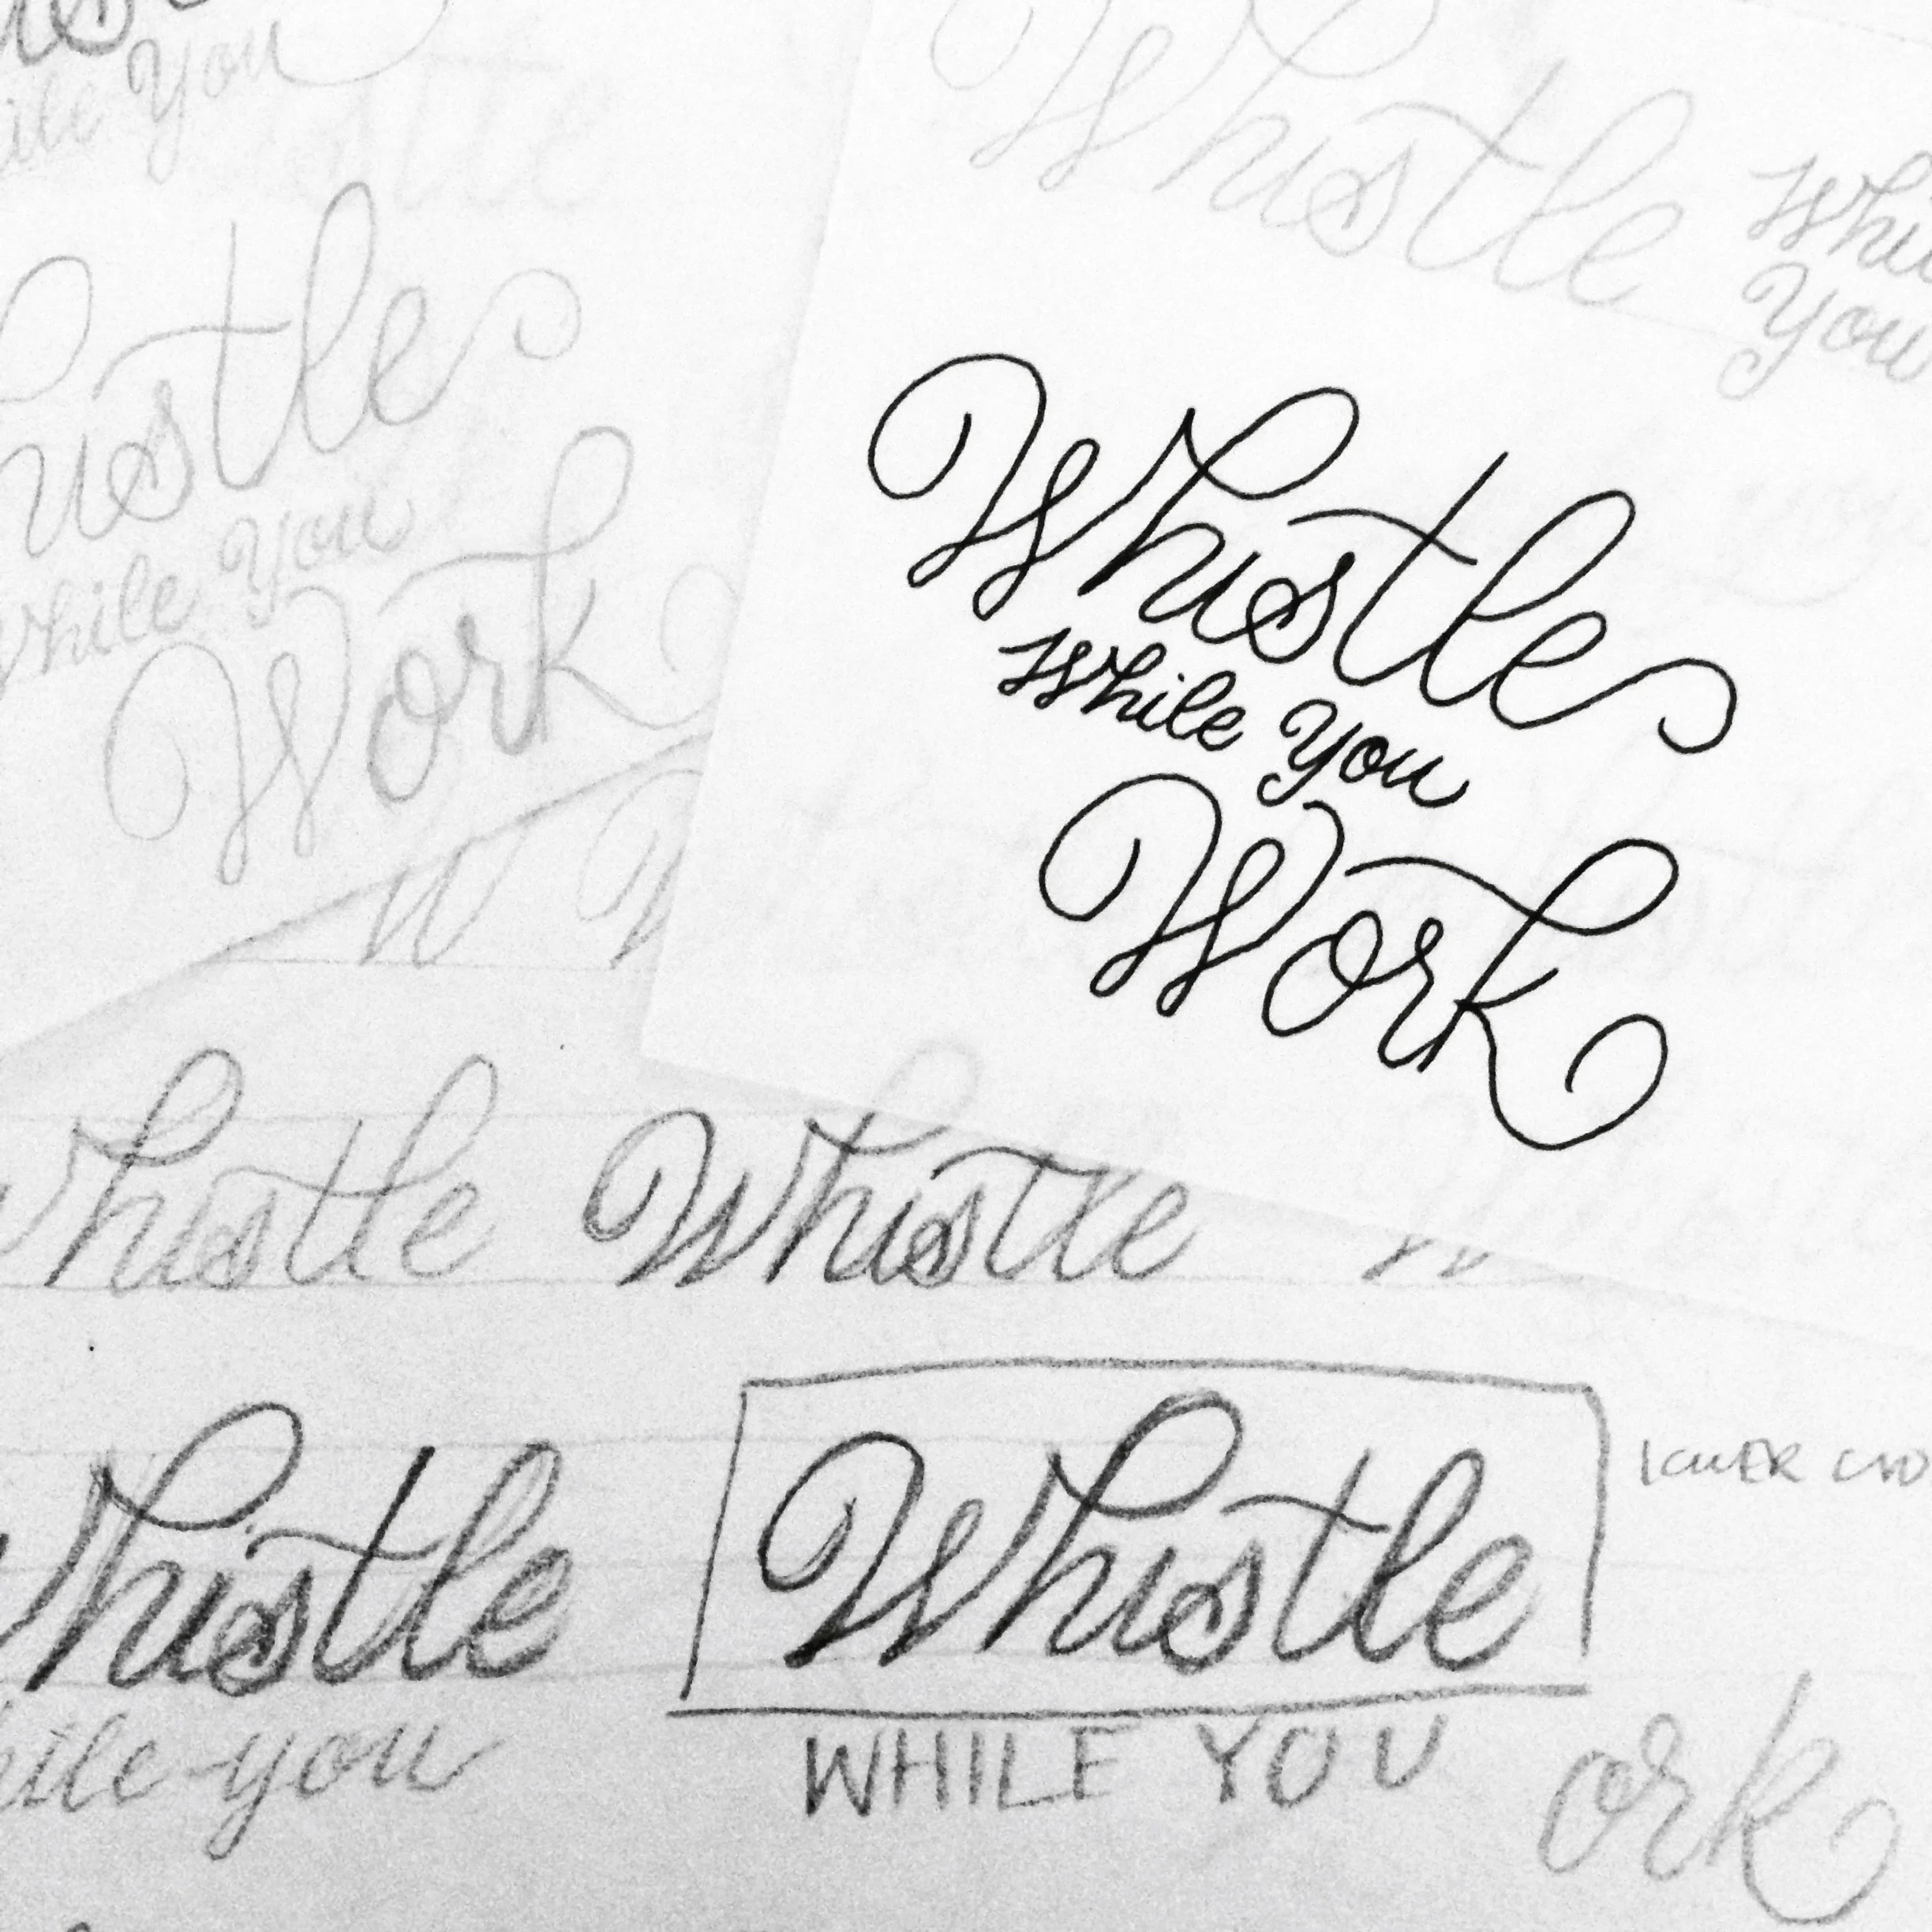 While You
Whistle
While You
Whistle
While You
Work
Whistle
While You
Work
Whistle
Whistle
Whistle
while you
Whistle
WHILE YOU
ork